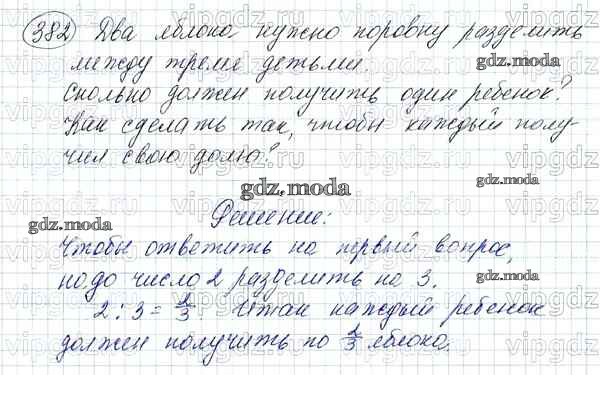 382 Два яблока нужно поровну разделить
между тремя детьми.
Сколько должен получить один ребенок?
Как сделать так, чтобы каждый полу-
чил свою долю?
Решение:
Чтобы ответить на первый вопрос,
надо число 2 разделить на 3.
2 : 3 = 2/3 Итак каждый ребенок
должен получить по 2/3 яблока.
gdz.moda
gdz.moda
gdz.moda
gdz.moda
gdz.moda
gdz.moda
vipgdz